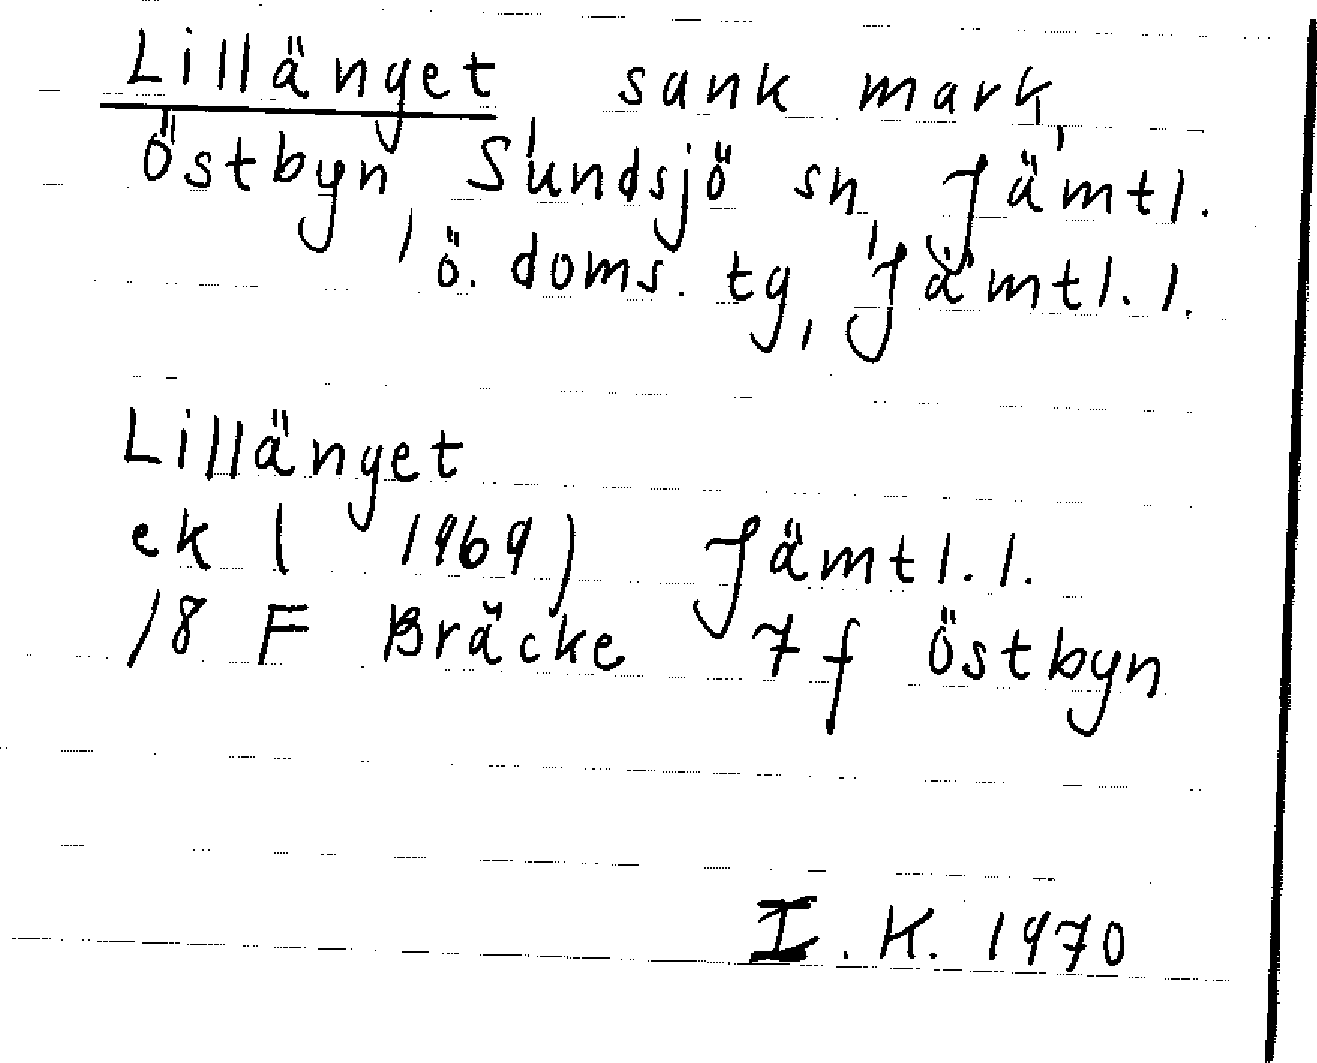 Lillänget sank mark,
Östbyn, Sundsjö sn, Jämtl.
ö. doms. tg, Jämtl. l.
Lillänget
ek ( 1969) Jämtl. l.
18 F Bräcke 7 f Östbyn
I. K. 1970